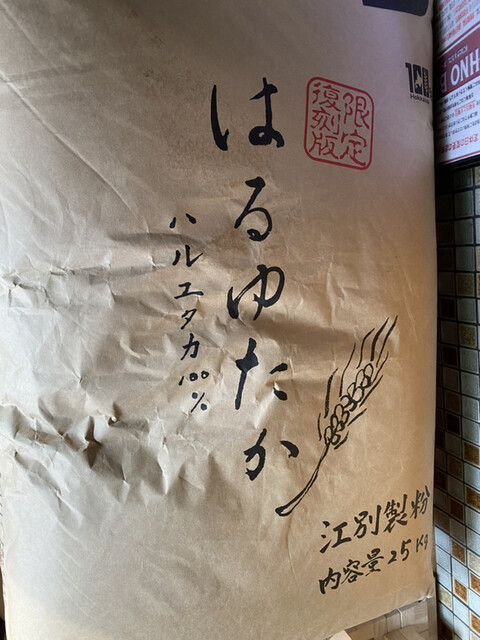 限定
復刻版
はるゆたか
ハルユタカ100%
江別製粉
内容量25Kg